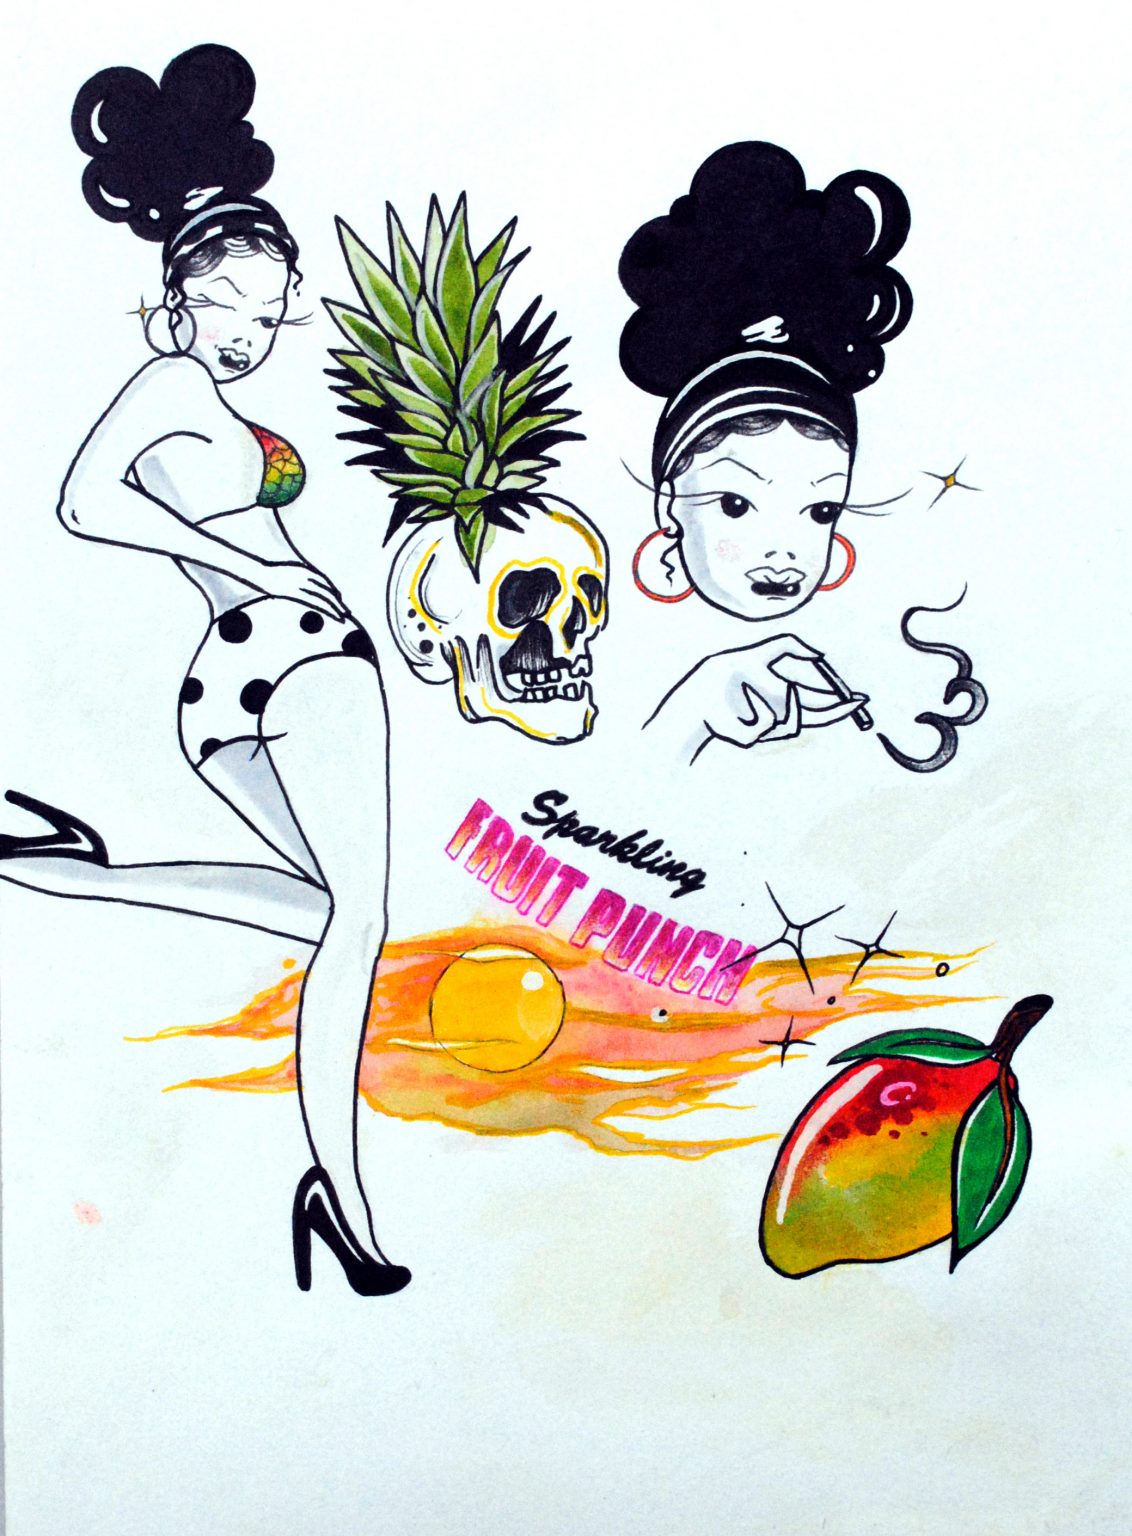 Sparkling
FRUIT PUNCH